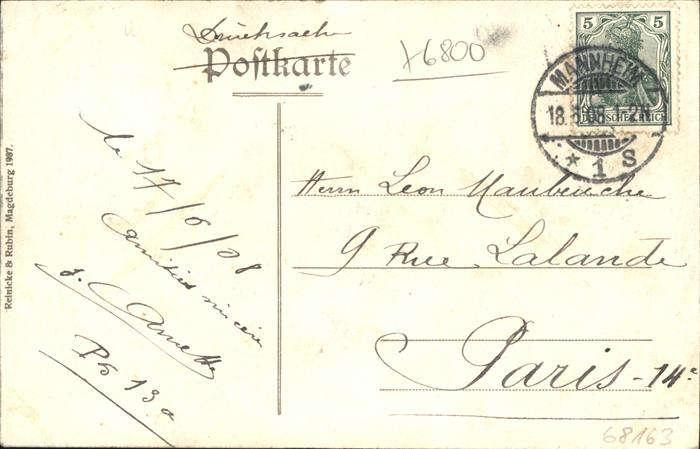 Drucksache
Postkarte
+6800
5 5
DEUTSCHES REICH
MANNHEIM
18.6.08.1-2N
* 1 S
Reinicke & Rubin, Magdeburg 1907.
le 17/6/08
Amitiés sincères
Herrn Leon Maubeuche
9 Rue Lalande
Paris-14e
68163